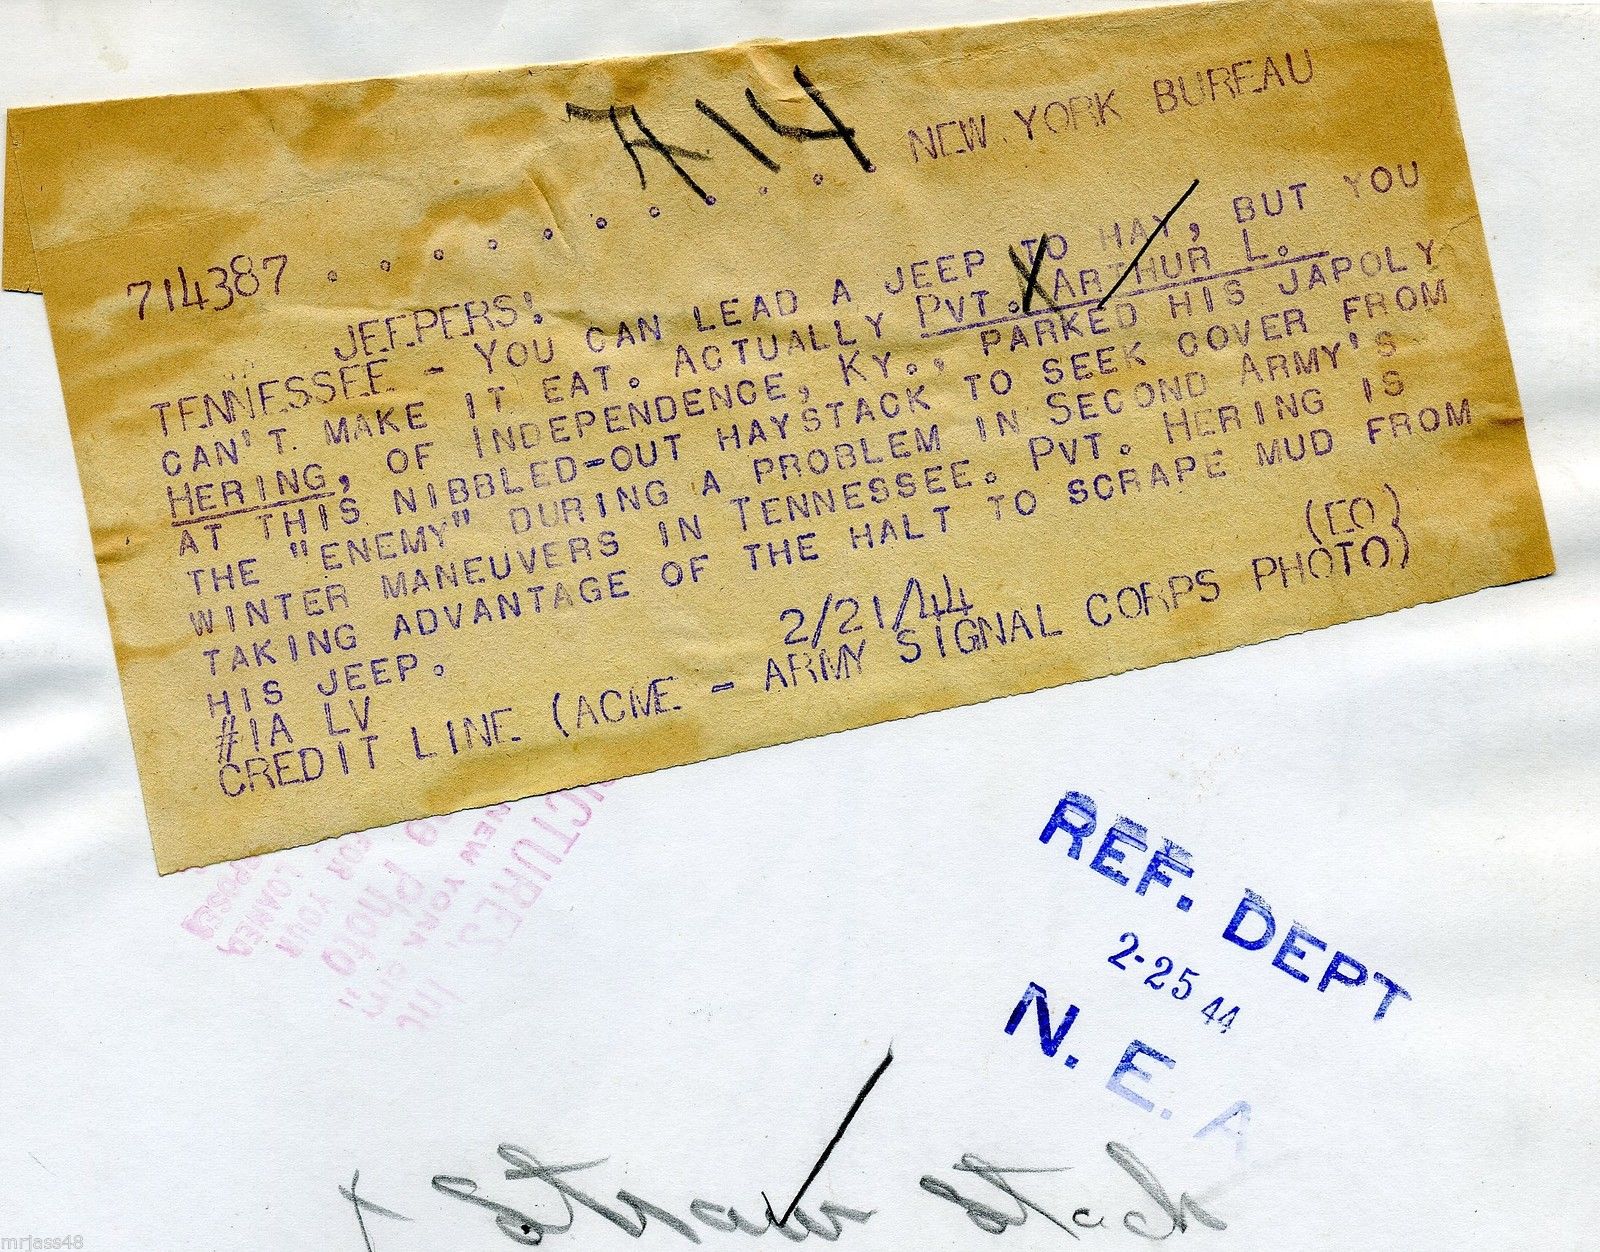 A14
714387 . . . . . . . . . . . NEW YORK BUREAU
JEEPERS!
TENNESSEE - YOU CAN LEAD A JEEP TO HAY, BUT YOU
CAN'T MAKE IT EAT. ACTUALLY PVT. ARTHUR L.
HERING, OF INDEPENDENCE, KY., PARKED HIS JAPOLY
AT THIS NIBBLED-OUT HAYSTACK TO SEEK COVER FROM
THE "ENEMY" DURING A PROBLEM IN SECOND ARMY'S
WINTER MANEUVERS IN TENNESSEE. PVT. HERING IS
TAKING ADVANTAGE OF THE HALT TO SCRAPE MUD FROM
HIS JEEP.
#1A LV 2/21/44 (EO)
CREDIT LINE (ACME - ARMY SIGNAL CORPS PHOTO)
PICTURES Inc
NEW YORK
photo
FOR YOUR
LOANED
REF. DEPT
2-25 44
N. E. A
x Straw Stack
mrjass48